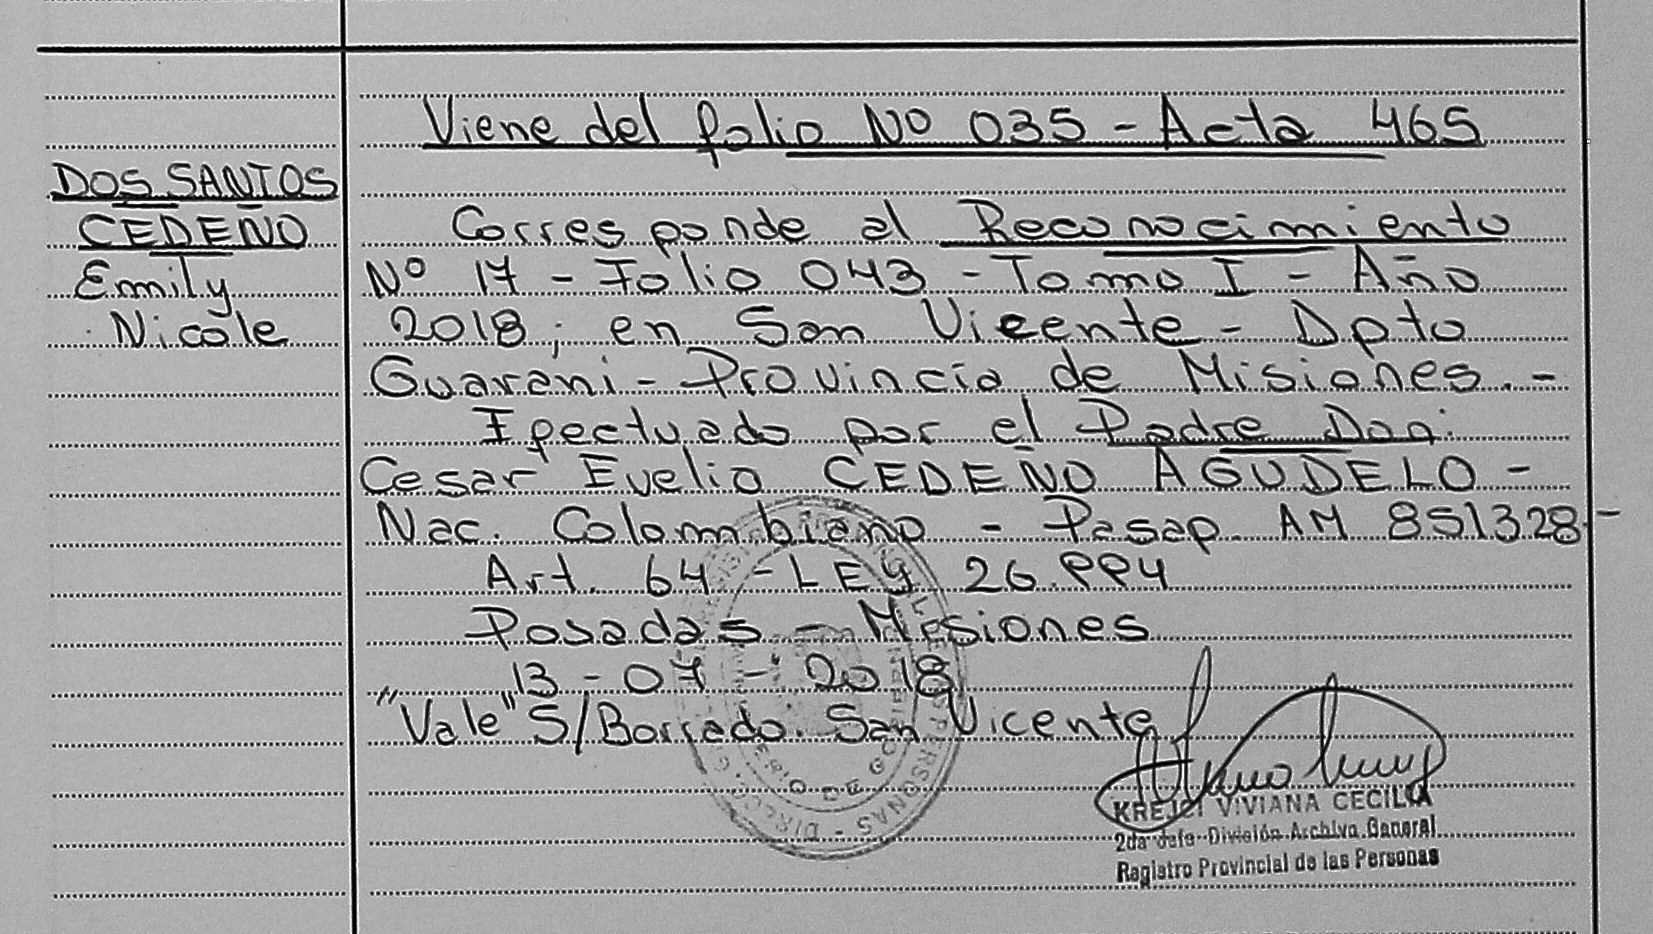 Viene del folio Nº 035 - Acta 465
DOS SANTOS
CEDEÑO
Emily
Nicole
Corresponde al Reconocimiento
Nº 17 - Folio 043 - Tomo I - Año
2018; en San Vicente - Dpto
Guarani - Provincia de Misiones. -
Efectuado por el Padre Don:
Cesar Evelio CEDEÑO AGUDELO -
Nac. Colombiano - Pasap. AM 851328 -
Art. 64 - LEY 26.994
Posadas - Misiones
13 - 07 - 2018
"Vale" S/Borrado. San Vicente
KREJCI VIVIANA CECILIA
2da Jefa División Archivo General
Registro Provincial de las Personas